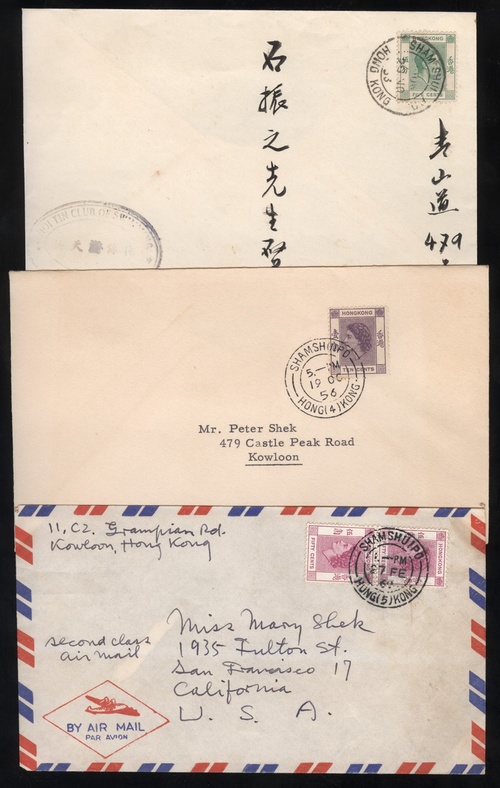 石振之先生啓
青山道
479
SHAMSHUIPO
HONG KONG
HONGKONG
香港
FIVE CENTS
HONGKONG
香港
TEN CENTS
SHAMSHUIPO
5.—PM
19 OC
56
HONG(4)KONG
Mr. Peter Shek
479 Castle Peak Road
Kowloon
11, C2. Grampian Rd.
Kowloon, Hong Kong
FIFTY CENTS
SHAMSHUIPO
—PM
27 FE
HONG(5)KONG
second class
air mail
Miss Mary Shek
1935 Fulton St.
San Francisco 17
California
U. S. A.
BY AIR MAIL
PAR AVION